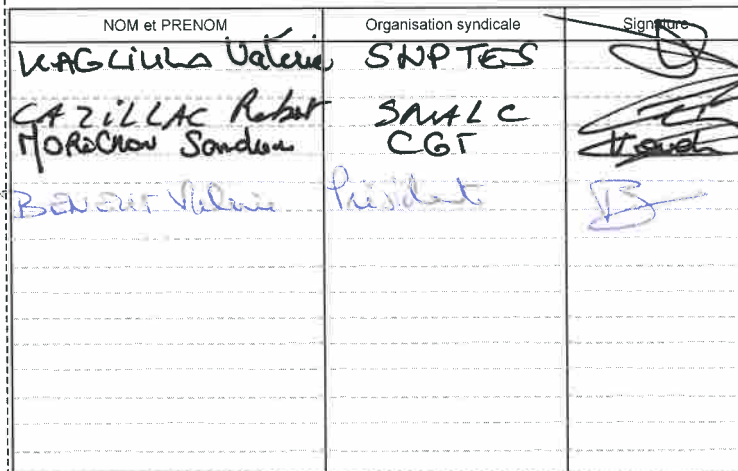 NOM et PRENOM Organisation syndicale Signature
KAGLIULA Valérie SNPTES
CAZILLAC Robert SNALC
MORICHON Sandra CGT
BENEZIT Valérie Président